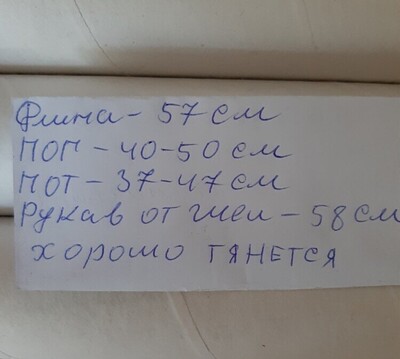 Длина - 57 см
ПОГ - 40-50 см
ПОТ - 37-47 см
Рукав от шеи - 58 см
хорошо тянется